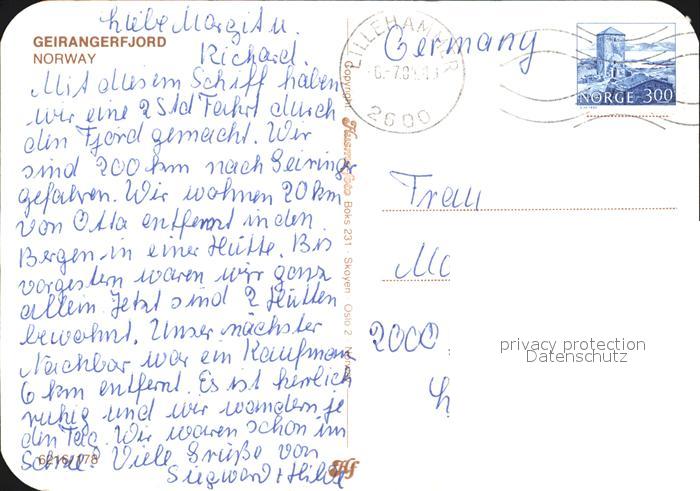 Liebe Margit u.
GEIRANGERFJORD
NORWAY
Richard.
Mit diesem Schiff haben
wir eine 2 Std Fahrt durch
den Fjord gemacht. Wir
sind 200 km nach Geiringer
gefahren. Wir wohnen 20 km
von Otta entfernt in den
Bergen in einer Hütte. Bis
vorgestern waren wir ganz
allein. Jetzt sind 2 Hütten
bewohnt. Unser nächster
Nachbar war ein Kaufmann
6 km entfernt. Es ist herrlich
ruhig und wir wandern je
den Tag. Wir waren schon im
Schnee! Viele Grüße von
Siegward + Hilde
Copyright: Boks 231 Skøyen Oslo 2
LILLEHAMMER
2600
Germany
NORGE 300
Frau
2000
privacy protection
Datenschutz